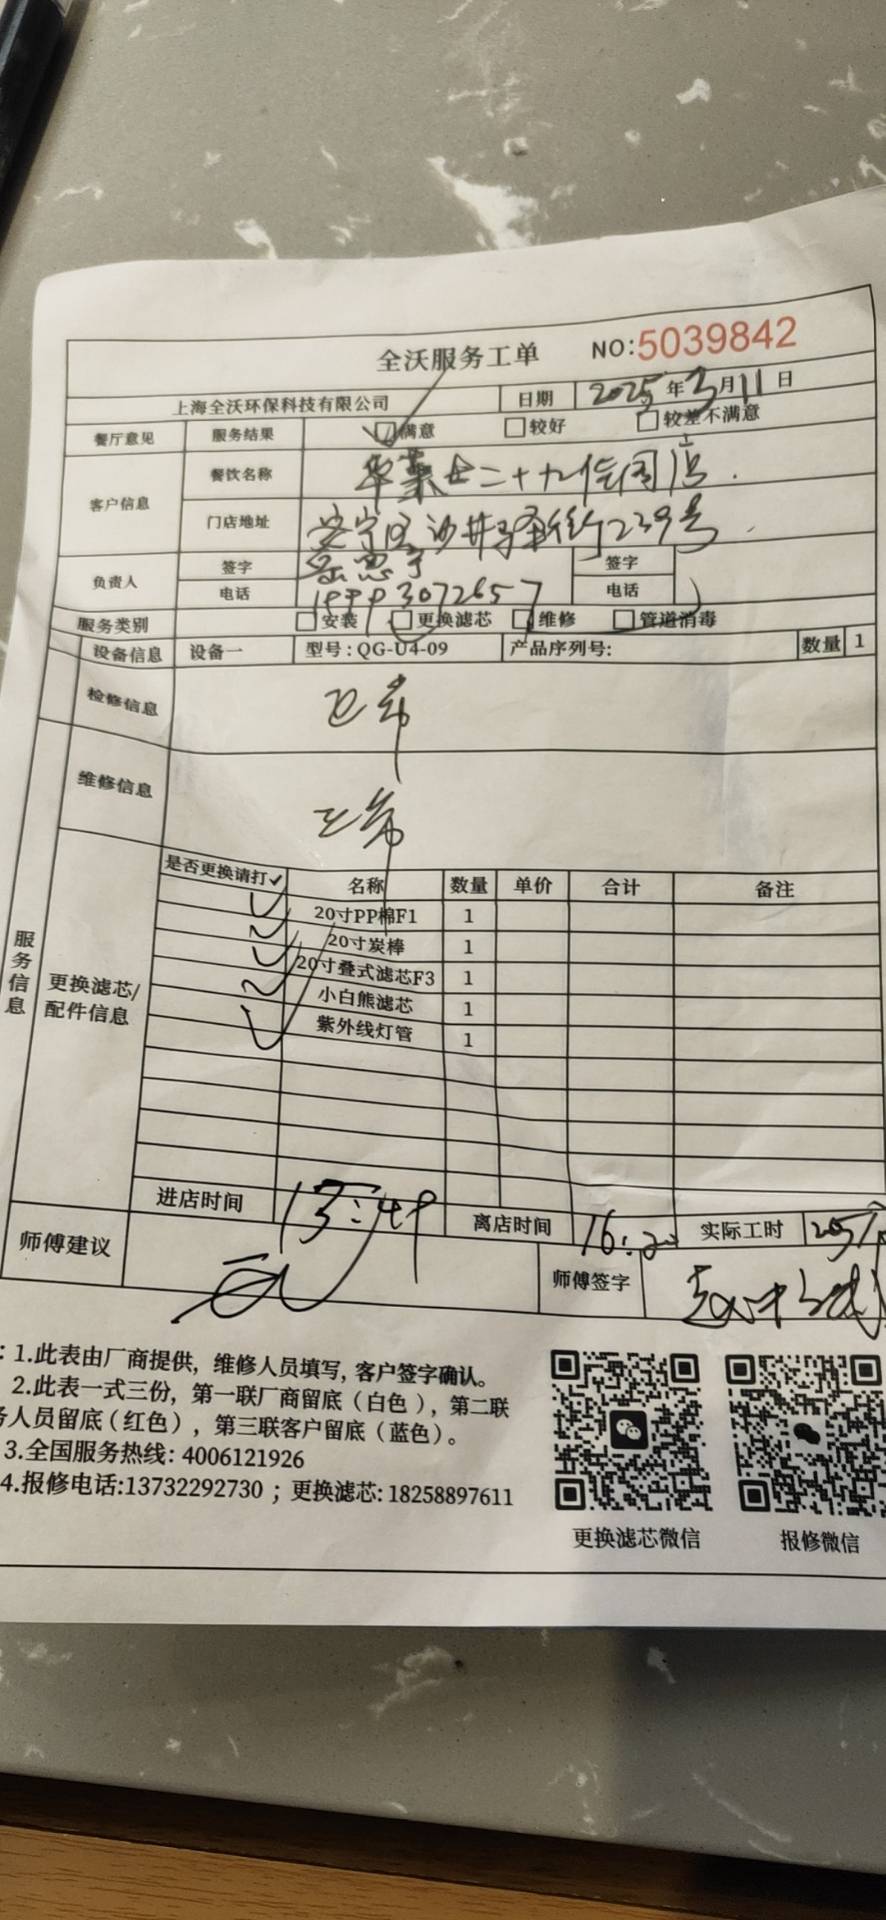 全沃服务工单 NO:5039842
上海全沃环保科技有限公司 日期 2025年3月11日
餐厅意见 服务结果 满意 较好 较差不满意
客户信息 餐饮名称 华莱士二十九信用店
门店地址 安宁区沙井驿街239号
负责人 签字 签字
电话 19993072657 电话
服务类别 安装 更换滤芯 维修 管道消毒
设备信息 设备一 型号:QG-U4-09 产品序列号: 数量 1
检修信息 正常
维修信息 正常
服务信息
更换滤芯/配件信息
是否更换请打✓ 名称 数量 单价 合计 备注
✓ 20寸PP棉F1 1
✓ 20寸炭棒 1
✓ 20寸叠式滤芯F3 1
✓ 小白熊滤芯 1
✓ 紫外线灯管 1
进店时间 13:49 离店时间 16:20 实际工时
师傅建议 无 师傅签字
:1.此表由厂商提供，维修人员填写,客户签字确认。
2.此表一式三份，第一联厂商留底（白色），第二联
务人员留底（红色），第三联客户留底（蓝色）。
3.全国服务热线: 4006121926
4.报修电话:13732292730 ；更换滤芯: 18258897611
更换滤芯微信 报修微信